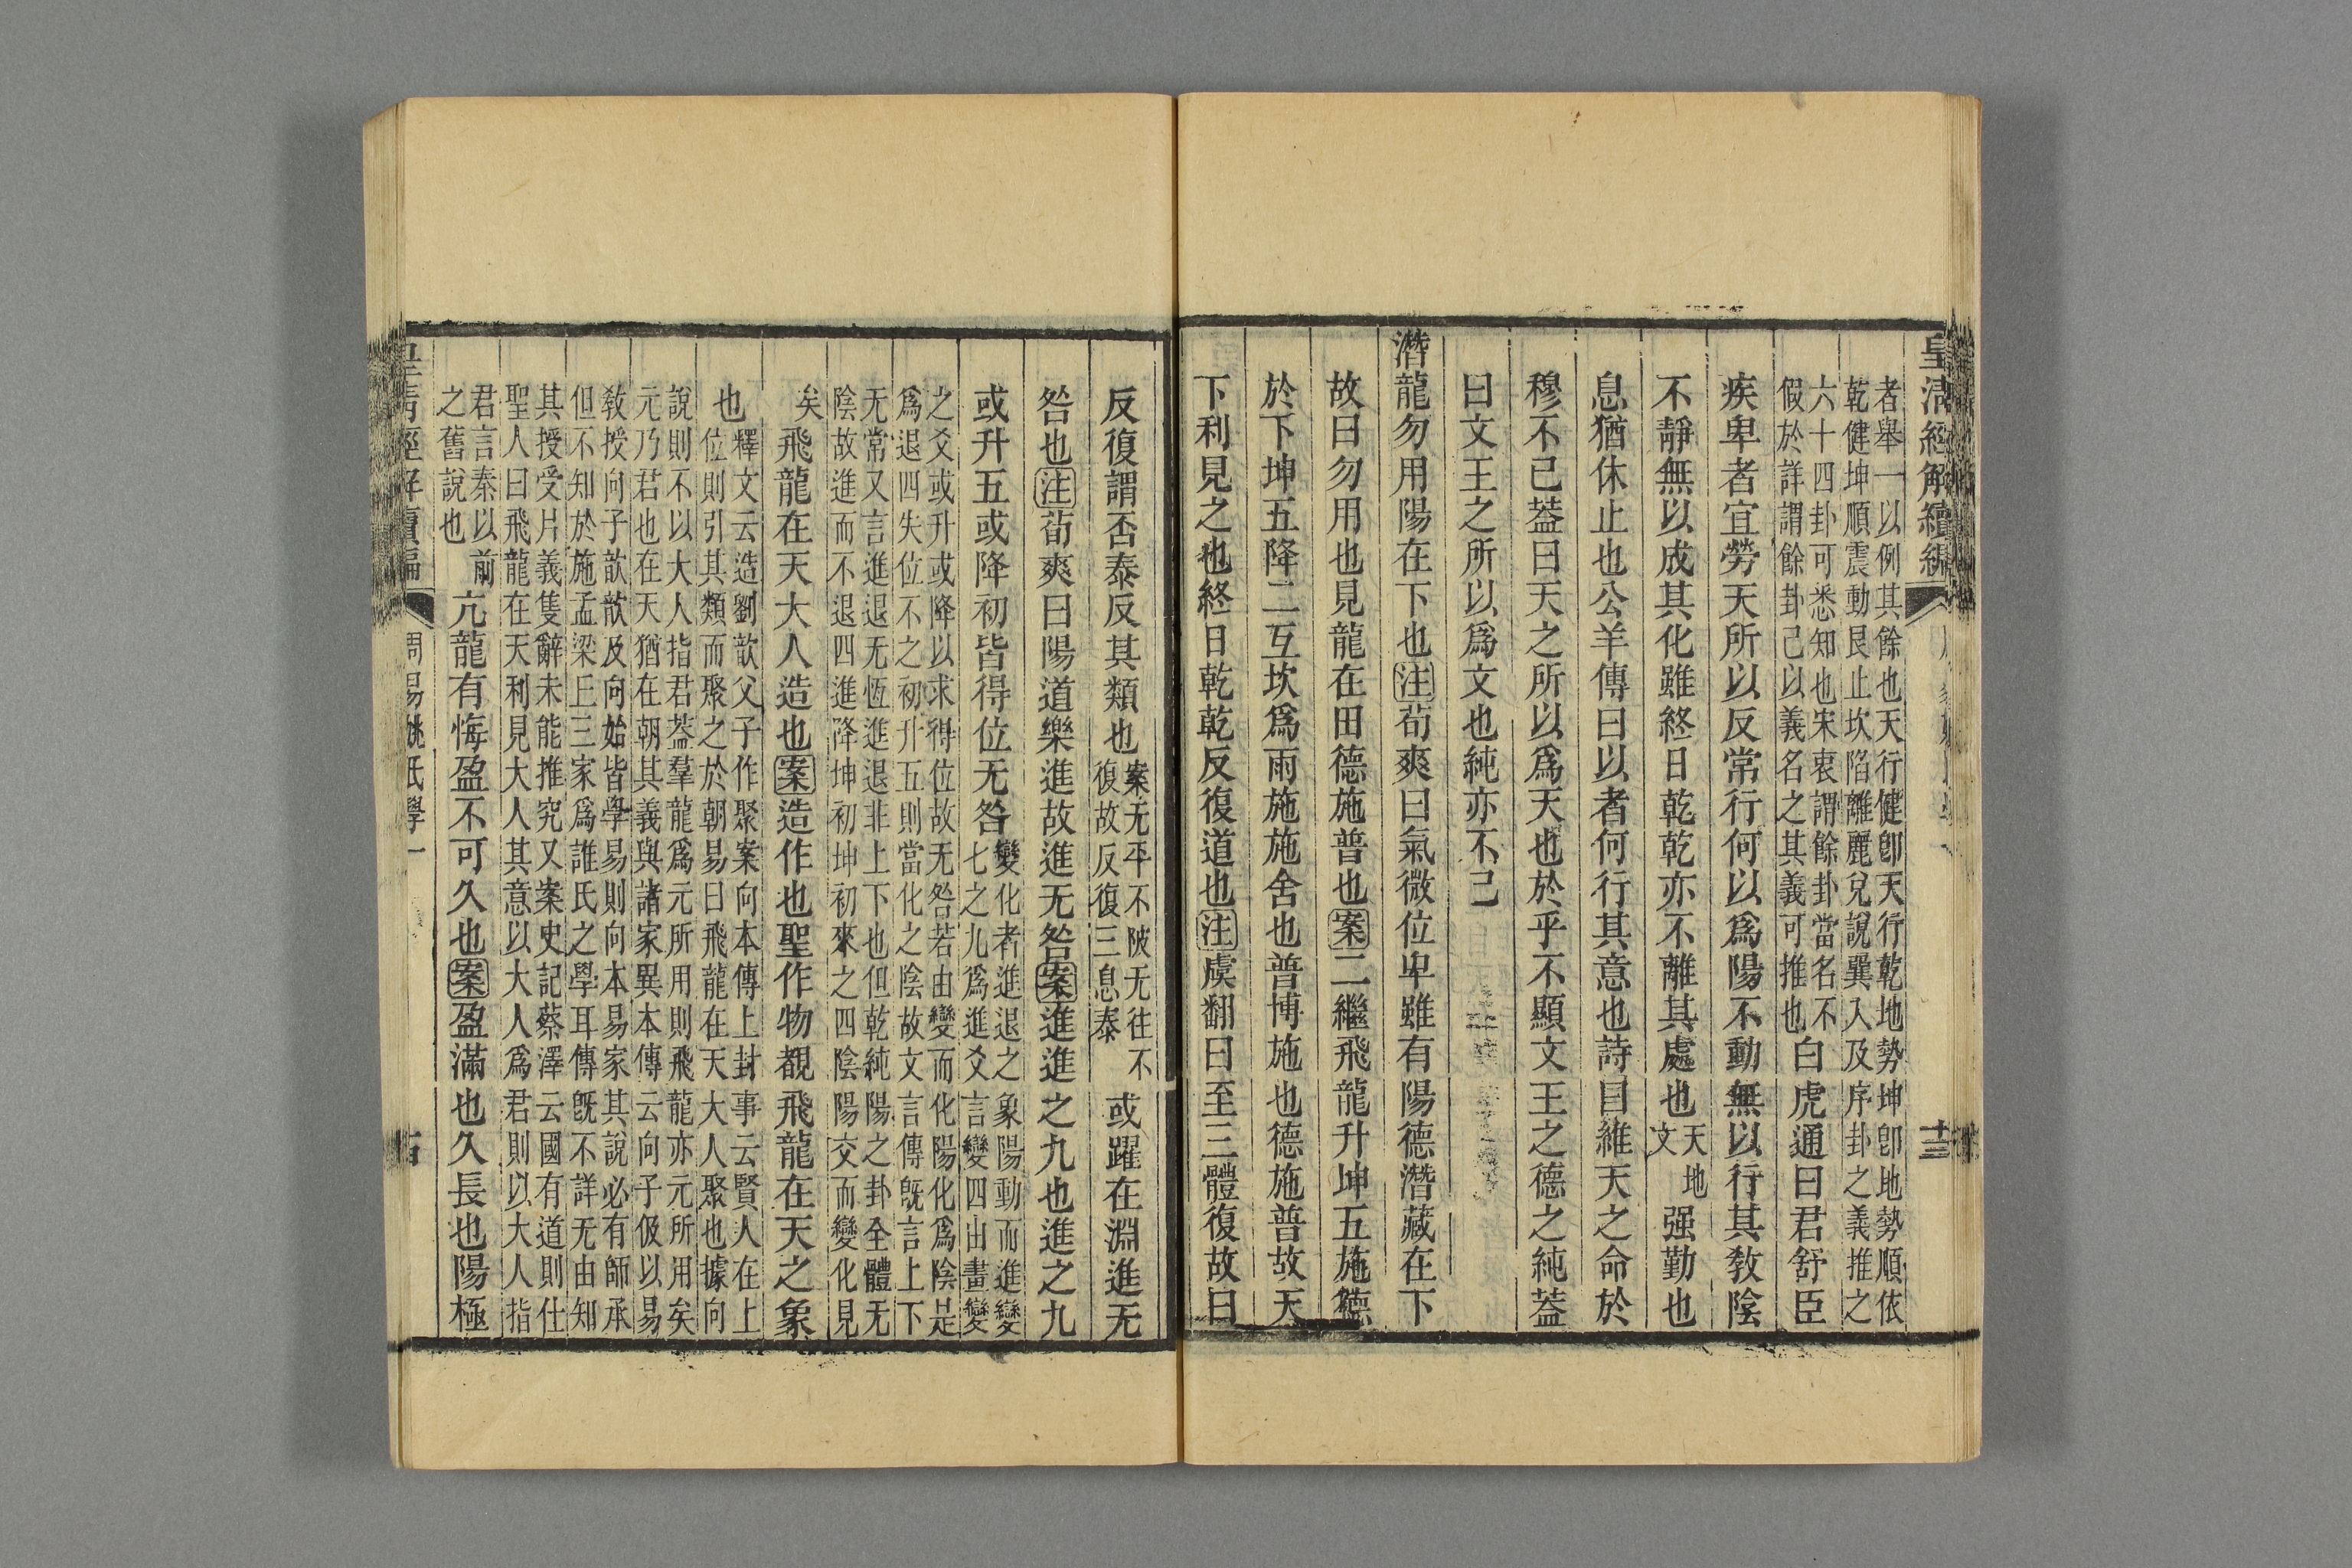 皇清經解續編
十三
者舉一以例其餘也天行健卽天行乾地勢坤卽地勢順依
乾健坤順震動艮止坎陷離麗兌說巽入及序卦之義推之
六十四卦可悉知也宋衷謂餘卦當名不
假於詳謂餘卦己以義名之其義可推也
白虎通曰君舒臣
疾卑者宜勞天所以反常行何以爲陽不動無以行其敎陰
不靜無以成其化雖終日乾乾亦不離其處也
天地
文
强勤也
息猶休止也公羊傳曰以者何行其意也詩曰維天之命於
穆不已葢曰天之所以爲天也於乎不顯文王之德之純葢
曰文王之所以爲文也純亦不已
潛龍勿用陽在下也注荀爽曰氣微位卑雖有陽德潛藏在下
故曰勿用也見龍在田德施普也案二繼飛龍升坤五施德
於下坤五降二互坎爲雨施施舍也普博施也德施普故天
下利見之也終日乾乾反復道也注虞翻曰至三體復故曰
反復謂否泰反其類也
案无平不陂无往不
復故反復三息泰
或躍在淵進无
咎也注荀爽曰陽道樂進故進无咎案進進之九也進之九
或升五或降初皆得位无咎
變化者進退之象陽動而進變
七之九爲進爻言變四由畫變
之爻或升或降以求得位故无咎若由變而化陽化爲陰是
爲退四失位不之初升五則當化之陰故文言傳旣言上下
无常又言進退无恆進退非上下也但乾純陽之卦全體无
陰故進而不退四進降坤初坤初來之四陰陽交而變化見
矣
飛龍在天大人造也案造作也聖作物覩飛龍在天之象
也
釋文云造劉歆父子作聚案向本傳上封事云賢人在上
位則引其類而聚之於朝易曰飛龍在天大人聚也據向
說則不以大人指君葢羣龍爲元所用則飛龍亦元所用矣
元乃君也在天猶在朝其義與諸家異本傳云向子伋以易
敎授向子歆歆及向始皆學易則向本易家其說必有師承
但不知於施孟梁丘三家爲誰氏之學耳傳旣不詳无由知
其授受片義隻辭未能推究又案史記蔡澤云國有道則仕
聖人曰飛龍在天利見大人其意以大人爲君則以大人指
君言秦以前
之舊說也
亢龍有悔盈不可久也案盈滿也久長也陽極
皇清經解續編
周易姚氏學一